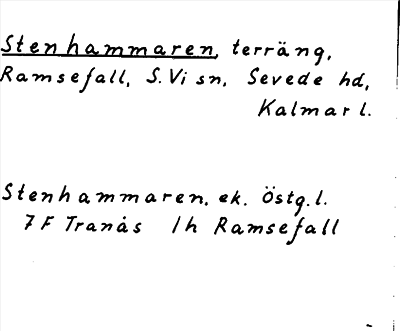 Stenhammaren, terräng,
Ramsefall, S.Vi sn, Sevede hd,
Kalmar l.
Stenhammaren, ek. Östg.l.
7 F Tranås 1h Ramsefall